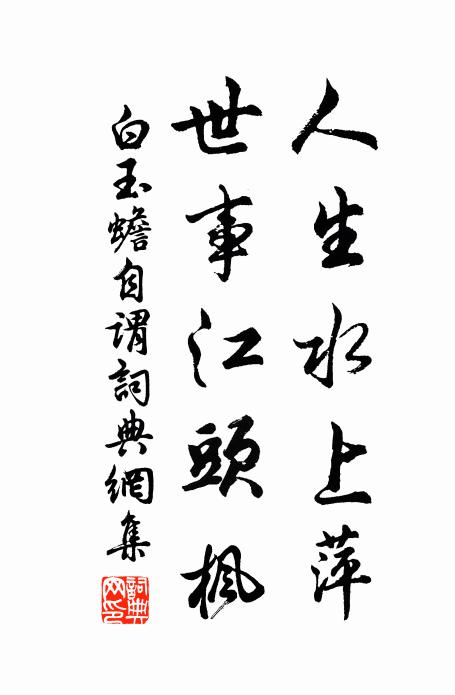 人生水上萍
世事江頭楓
白玉蟾自謂詞典網集
詞典
网印